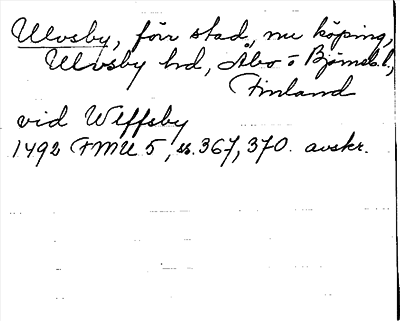 Ulvsby, förr stad, nu köping,
Ulvsby hd, Åbo o Björneb. l,
Finland
vid Wlffsby
1492 FMU 5, ss. 367, 370. avskr.